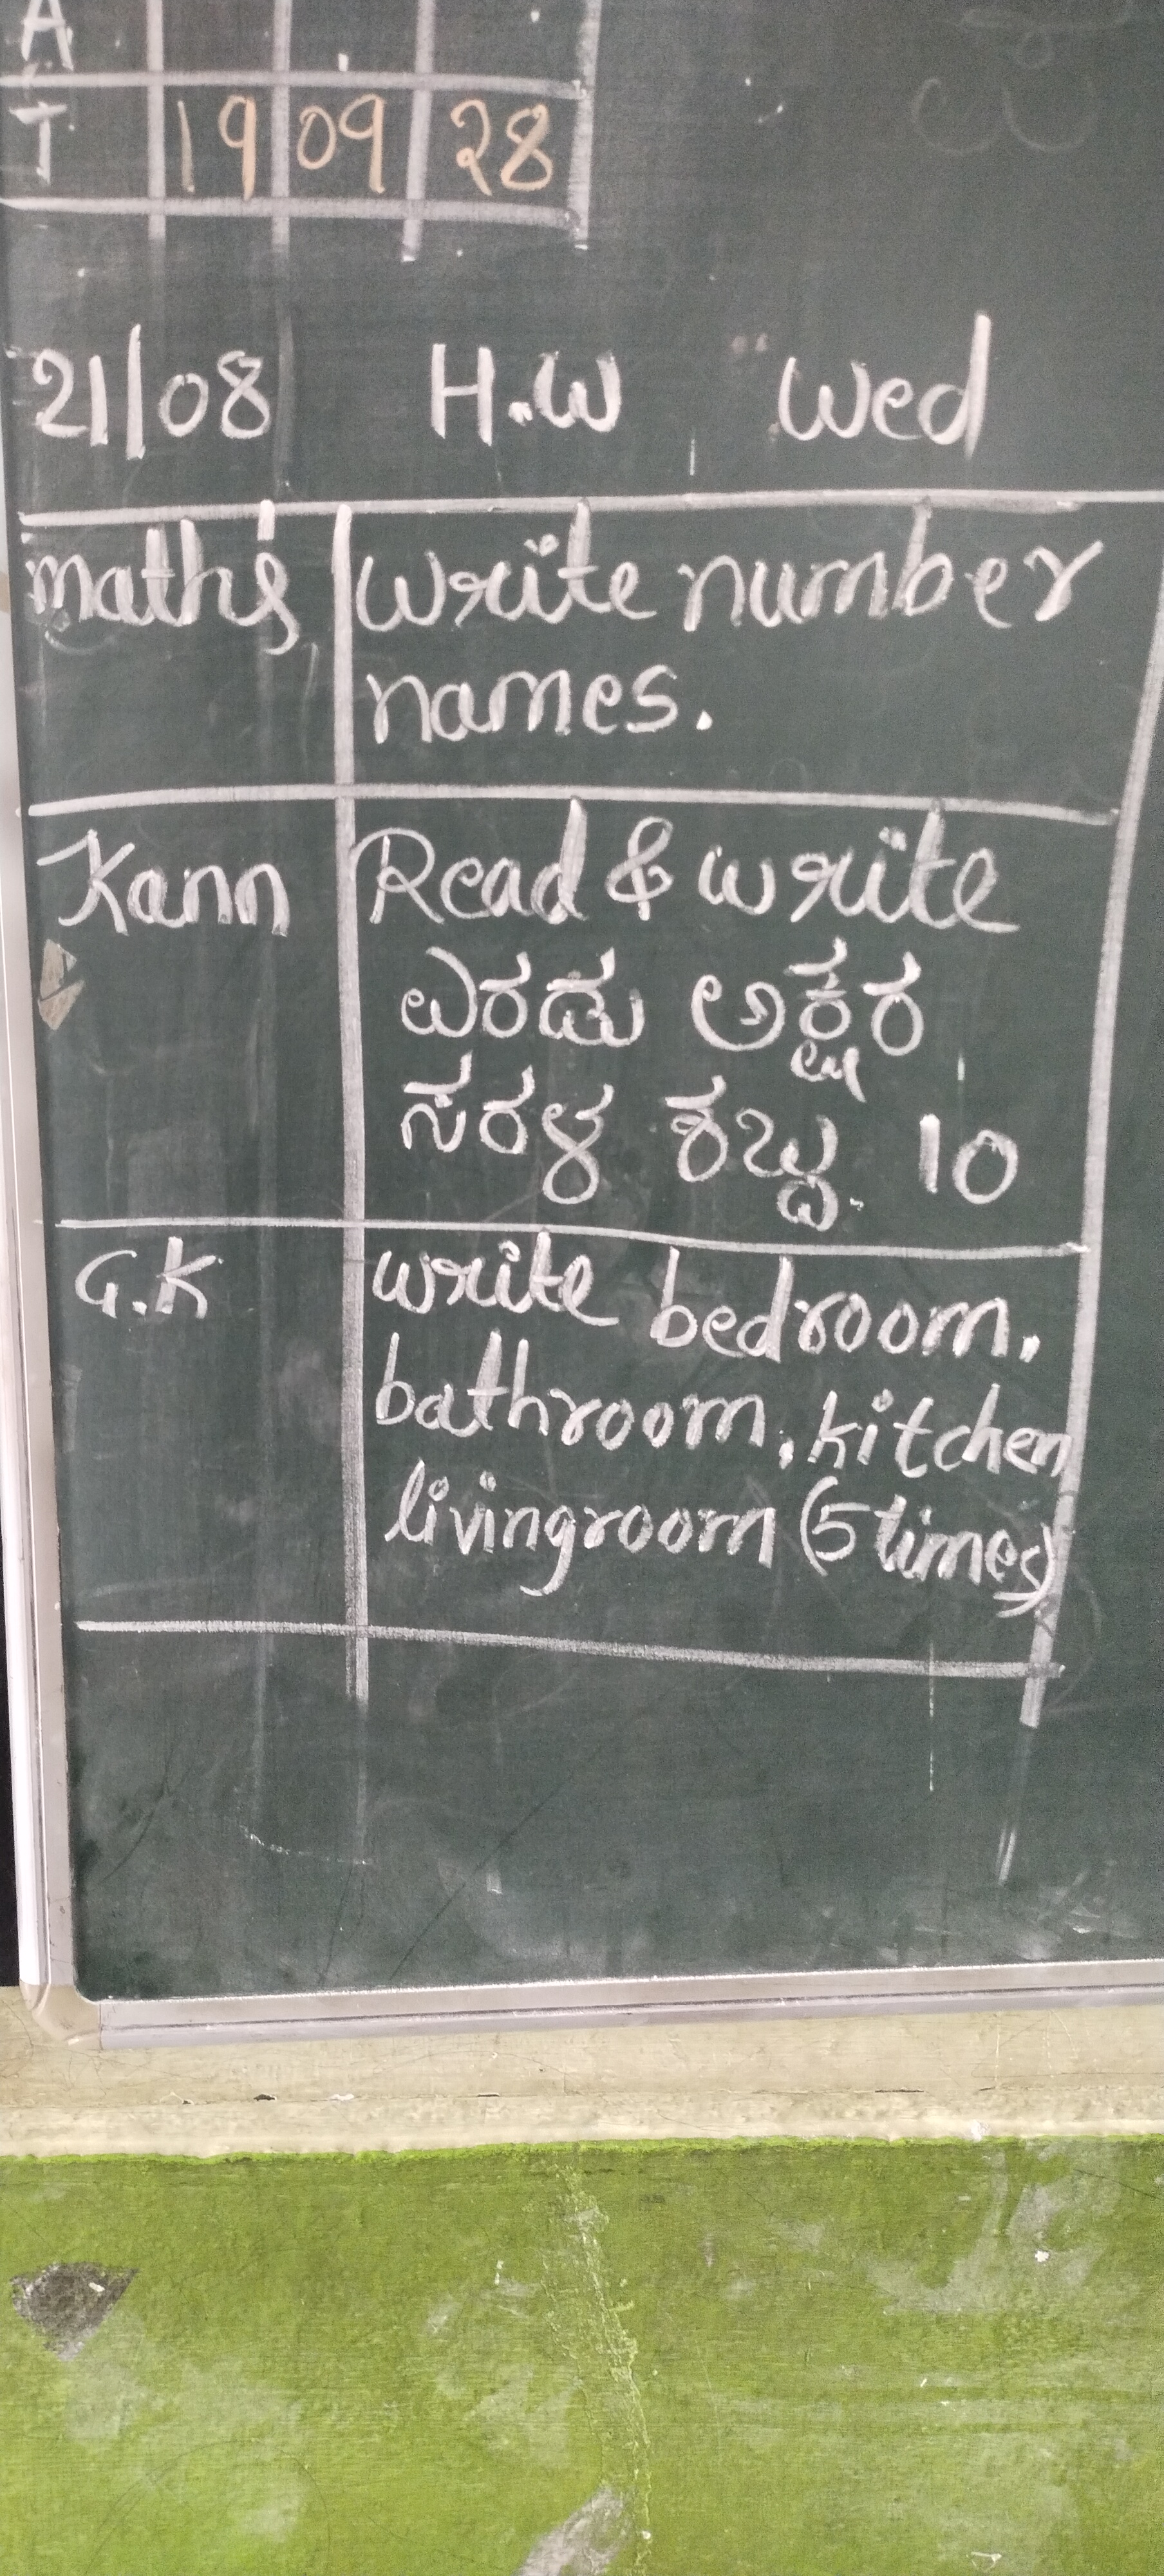 A
T 19 09 28
21/08 H.W Wed
maths write number
names.
Kann Read & write
ಎರಡು ಅಕ್ಷರ
ಸರಳ ಶಬ್ದ 10
G.K write bedroom,
bathroom, kitchen
livingroom (5 times)